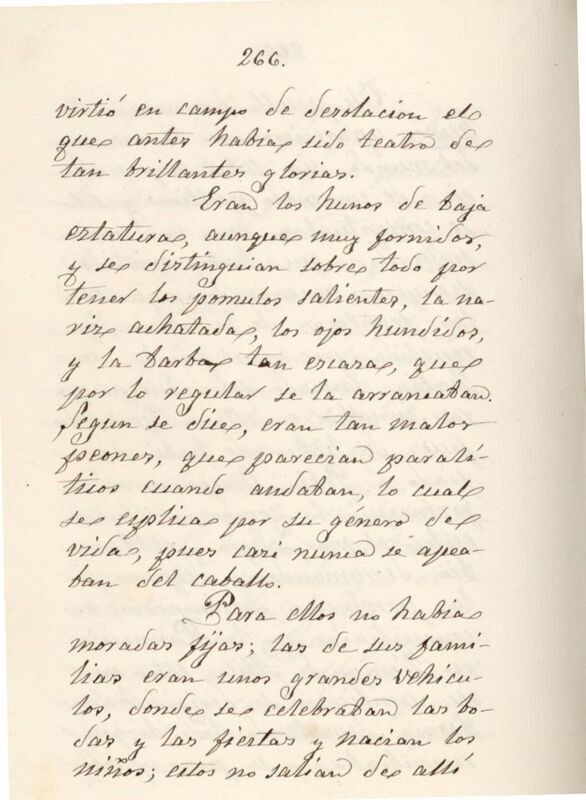 266.
virtió en campo de desolacion el
que antes habia sido teatro de
tan brillantes glorias.
Eran los hunos de baja
estatura, aunque muy fornidos,
y se distinguian sobre todo por
tener los pomulos salientes, la na-
riz achatada, los ojos hundidos,
y la barba tan escasa, que
por lo regular se la arrancaban.
Segun se dice, eran tan malos
peones, que parecian paralí-
ticos cuando andaban, lo cual
se esplica por su género de
vida, pues casi nunca se apea-
ban del caballo.
Para ellos no habia
moradas fijas; las de sus fami-
lias eran unos grandes vehícu-
los, donde se celebraban las bo-
das y las fiestas y nacian los
niños; estos no salian de allí